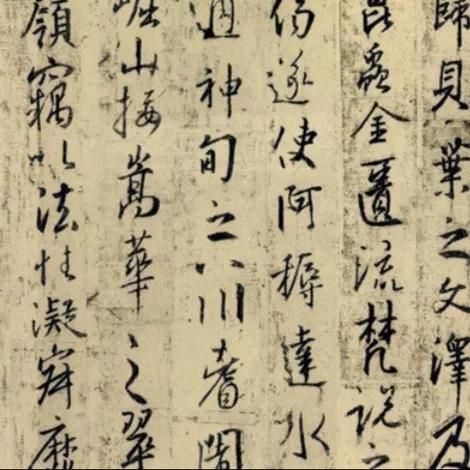 歸貝葉之文澤及
昆蟲金匱流梵說之
偈遂使阿耨達水
通神甸之八川耆闍
崛山接嵩華之翠
嶺竊以法性凝寂靡